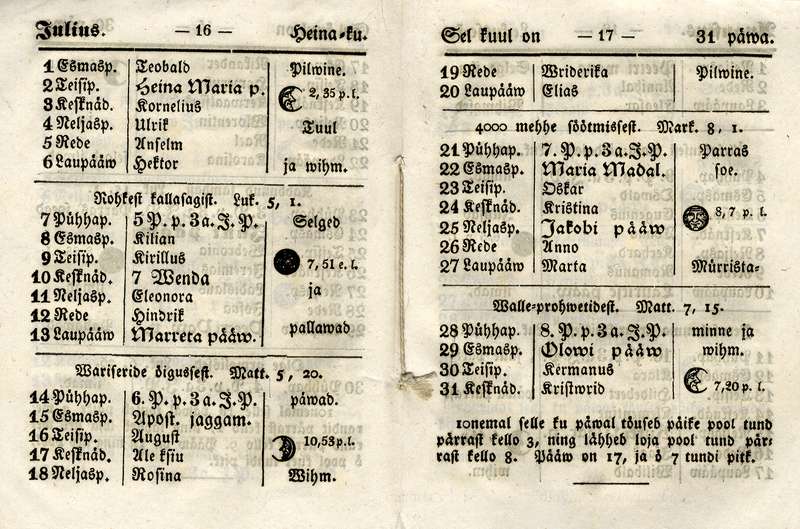 Julius. — 16 — Heina-ku.
1 Esmasp. Teobald Pilwine.
2 Teisip. Heina Maria p.
3 Kesknäd. Kornelius 2, 35 p. l.
4 Neljasp. Ulrik Tuul
5 Rede Anselm
6 Laupääw Hektor ja wihm.
Rohkest kallasagist. Luk. 5, 1.
7 Pühhap. 5 P. p. 3 a. J. P. Selged
8 Esmasp. Kilian
9 Teisip. Kirillus 7, 51 e. l.
10 Kesknäd. 7 Wenda
11 Neljasp. Eleonora ja
12 Rede Hindrik
13 Laupääw Marreta pääw. pallawad
Wariseride õigussest. Matt. 5, 20.
14 Pühhap. 6. P. p. 3 a. J. P. päwad.
15 Esmasp. Apost. jaggam.
16 Teisip. August 10,53 p. l.
17 Kesknäd. Aleksiu
18 Neljasp. Rosina Wihm.
Sel kuul on — 17 — 31 päwa.
19 Rede Wriderika Pilwine.
20 Laupääw Elias
4000 mehhe söötmissest. Mark. 8, 1.
21 Pühhap. 7. P. p. 3 a. J. P. Parras
22 Esmasp. Maria Madal. soe.
23 Teisip. Oskar
24 Kesknäd. Kristina 8, 7 p. l.
25 Neljasp. Jakobi pääw
26 Rede Anno
27 Laupääw Marta Mürrista-
Walle-prohwetidest. Matt. 7, 15.
28 Pühhap. 8. P. p. 3 a. J. P. minne ja
29 Esmasp. Olowi pääw wihm.
30 Teisip. Kermanus
31 Kesknäd. Kristwrid 7,20 p. l.
10nemal selle ku päwal tõuseb päike pool tund
pärrast kello 3, ning lähheb loja pool tund pär-
rast kello 8. Pääw on 17, ja ö 7 tundi pitk.